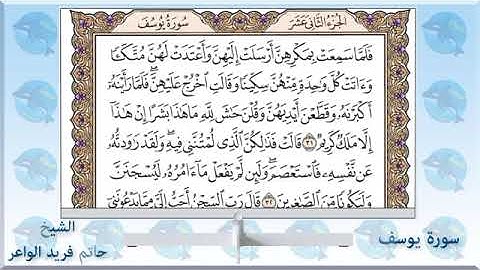 الجزء الثاني عشر
سورة يوسف
فَلَمَّا سَمِعَتْ بِمَكْرِهِنَّ أَرْسَلَتْ إِلَيْهِنَّ وَأَعْتَدَتْ لَهُنَّ مُتَّكَـًٔا
وَءَاتَتْ كُلَّ وَٰحِدَةٍ مِّنْهُنَّ سِكِّينًا وَقَالَتِ ٱخْرُجْ عَلَيْهِنَّ ۖ فَلَمَّا رَأَيْنَهُۥٓ
أَكْبَرْنَهُۥ وَقَطَّعْنَ أَيْدِيَهُنَّ وَقُلْنَ حَٰشَ لِلَّهِ مَا هَٰذَا بَشَرًا إِنْ هَٰذَآ
إِلَّا مَلَكٌ كَرِيمٌ ٣١ قَالَتْ فَذَٰلِكُنَّ ٱلَّذِى لُمْتُنَّنِى فِيهِ ۖ وَلَقَدْ رَٰوَدتُّهُۥ
عَن نَّفْسِهِۦ فَٱسْتَعْصَمَ ۖ وَلَئِن لَّمْ يَفْعَلْ مَآ ءَامُرُهُۥ لَيُسْجَنَنَّ
وَلَيَكُونًا مِّنَ ٱلصَّٰغِرِينَ ٣٢ قَالَ رَبِّ ٱلسِّجْنُ أَحَبُّ إِلَىَّ مِمَّا يَدْعُونَنِىٓ
سورة يوسف
الشيخ
حاتم فريد الواعر